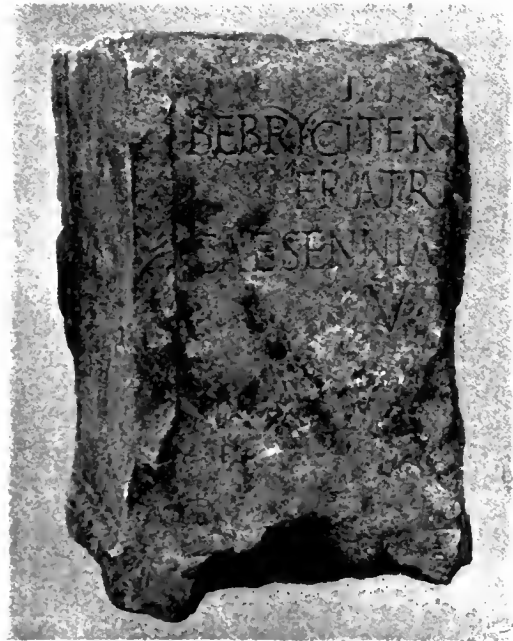 BEBRYCI TER
ER AT R
CAESENNIA
V